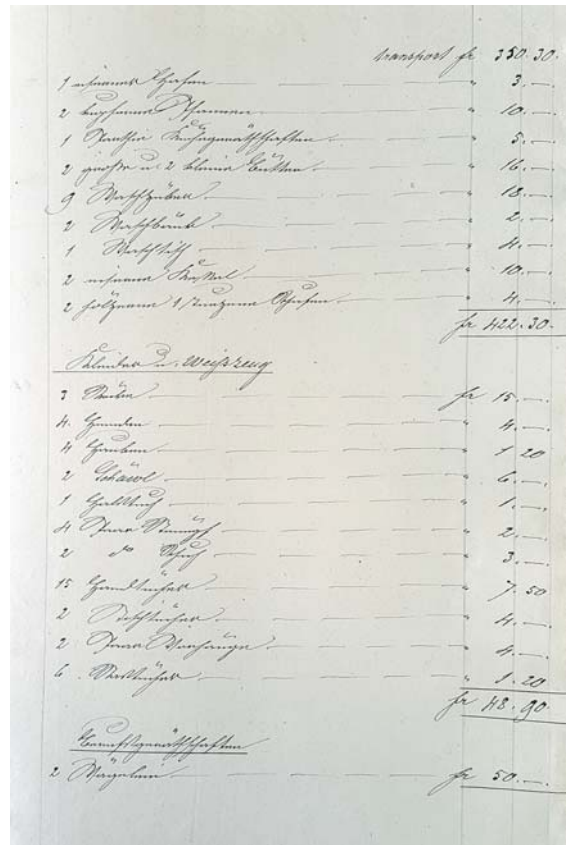 transport fr 350.30.
1 eisernes Hafen " 3.—.
2 kupferne Pfannen " 10.—.
1 Küchengeräthschaften " 5.—.
2 große u. 2 kleine Bütten " 16.—.
9 Waschzüber " 18.—.
2 Waschbänk " 2.—.
1 Waschtisch " 4.—.
2 eiserne Kessel " 10.—.
2 hölzerne 1 Schufen " 4.—.
fr 422.30.
Kleider u. Weißzeug
3 fr 15.—.
4. Hemden " 4.—.
4 Hauben " 1.20
2 Schäwl " 6.—.
1 Halstuch " 1.—.
4 Paar Strümpf " 2.—.
2 do Schuh " 3.—.
15 Handtücher " 7.50
2 Tischtücher " 4.—.
2 Paar Vorhänge " 4.—.
6. " 1.20
fr 48.90.
Berufsgeräthschaften
2 Wägelein fr 50.—.